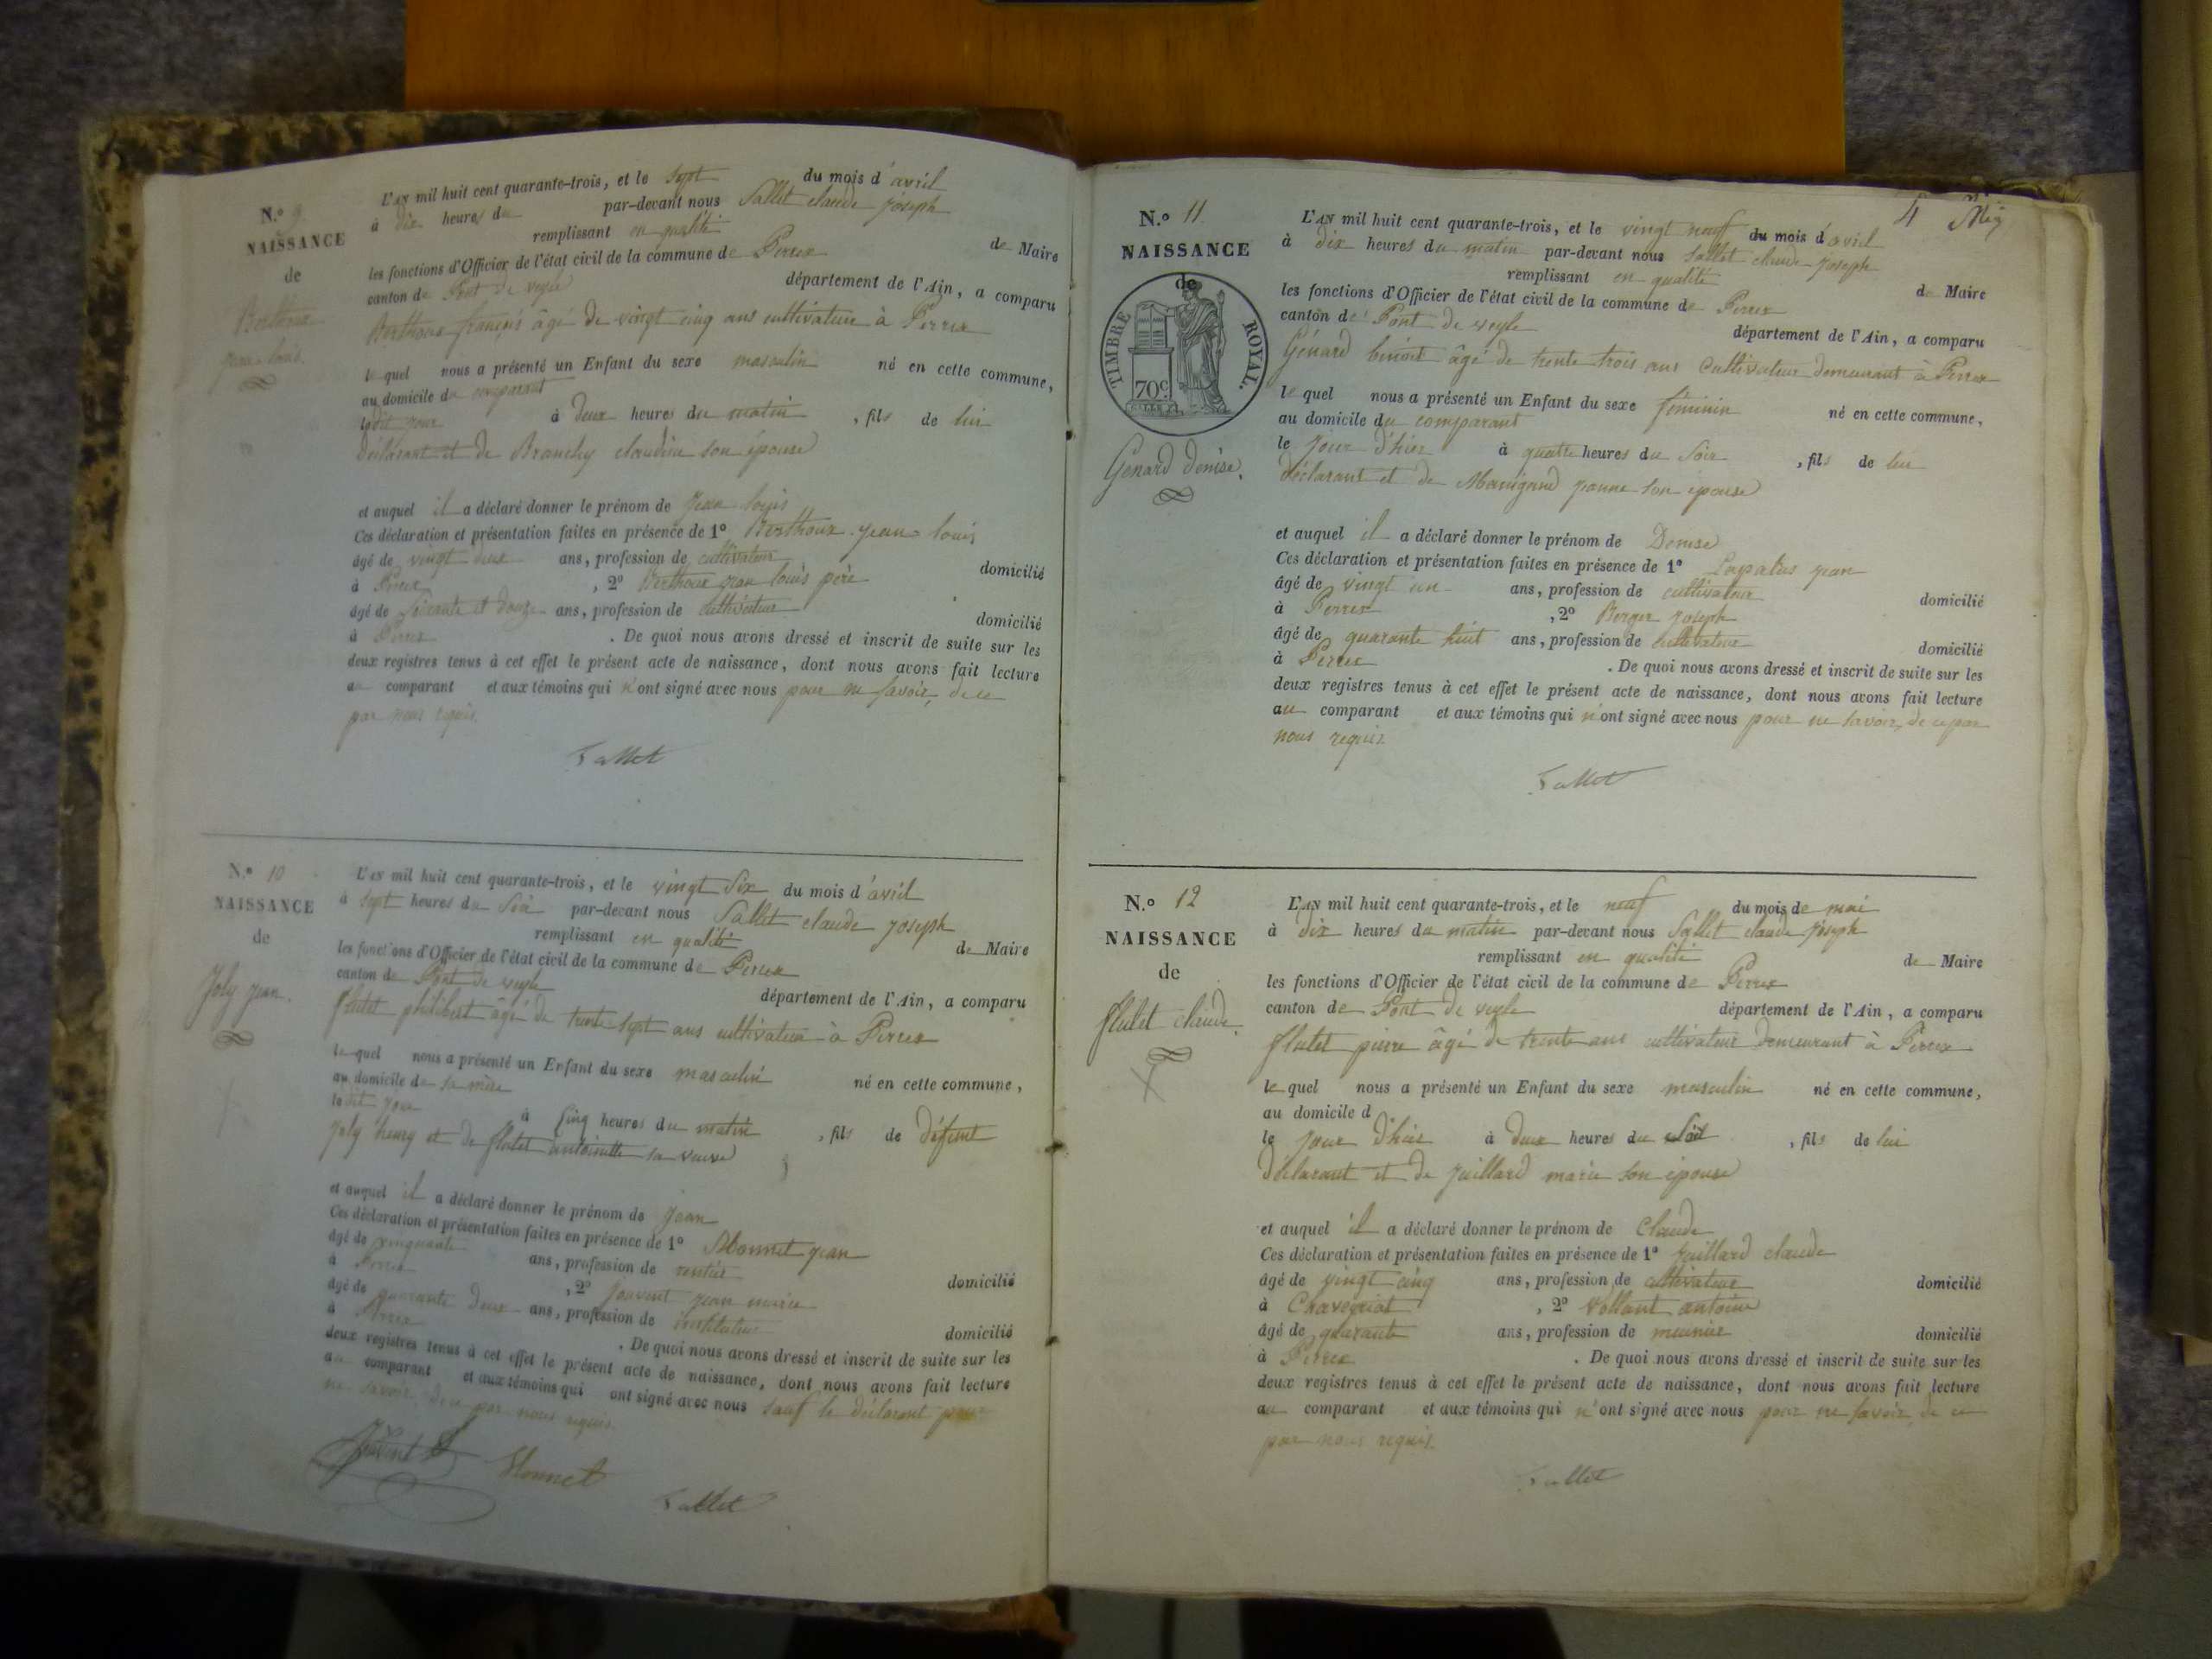 N.º 9
NAISSANCE
de
Berthoux
jean-louis.
L'AN mil huit cent quarante-trois, et le sept du mois d'avril
à dix heures du par-devant nous Sallet claude joseph
remplissant en qualité de Maire
les fonctions d'Officier de l'état civil de la commune de Perrex
canton de Pont de veyle département de l'Ain, a comparu
Berthoux françois âgé de vingt cinq ans cultivateur à Perrex
lequel nous a présenté un Enfant du sexe masculin né en cette commune,
au domicile du comparant
ledit jour à deux heures du matin, fils de lui
déclarant et de Branchy claudine son épouse
et auquel il a déclaré donner le prénom de jean louis
Ces déclaration et présentation faites en présence de 1º Berthoux jean louis
âgé de vingt deux ans, profession de cultivateur domicilié
à Perrex, 2º Berthoux jean louis père
âgé de soixante et douze ans, profession de cultivateur domicilié
à Perrex. De quoi nous avons dressé et inscrit de suite sur les
deux registres tenus à cet effet le présent acte de naissance, dont nous avons fait lecture
au comparant et aux témoins qui n'ont signé avec nous pour ne savoir, de ce
par nous requis.
Sallet
N.º 10
NAISSANCE
de
Joly jean.
L'AN mil huit cent quarante-trois, et le vingt six du mois d'avril
à sept heures du soir par-devant nous Sallet claude joseph
remplissant en qualité de Maire
les fonctions d'Officier de l'état civil de la commune de Perrex
canton de Pont de veyle département de l'Ain, a comparu
flutet philibert âgé de trente-sept ans cultivateur à Perrex
lequel nous a présenté un Enfant du sexe masculin né en cette commune,
au domicile de sa mère
ledit jour à cinq heures du matin, fils de défunt
joly henry et de flutet antoinette sa veuve
et auquel il a déclaré donner le prénom de jean
Ces déclaration et présentation faites en présence de 1º Monnet jean
âgé de cinquante ans, profession de rentier domicilié
à Perrex, 2º Jouvent jean marie
âgé de quarante deux ans, profession de instituteur domicilié
à Perrex. De quoi nous avons dressé et inscrit de suite sur les
deux registres tenus à cet effet le présent acte de naissance, dont nous avons fait lecture
au comparant et aux témoins qui ont signé avec nous sauf le déclarant pour
ne savoir, de ce par nous requis.
Jouvent Monnet
Sallet
4
N.º 11
NAISSANCE
de
TIMBRE ROYAL.
70 c.
Genard denise.
L'AN mil huit cent quarante-trois, et le vingt neuf du mois d'avril
à dix heures du matin par-devant nous Sallet claude-joseph
remplissant en qualité de Maire
les fonctions d'Officier de l'état civil de la commune de Perrex
canton de Pont de veyle département de l'Ain, a comparu
Génard benoit âgé de trente trois ans Cultivateur demeurant à Perrex
lequel nous a présenté un Enfant du sexe féminin né en cette commune,
au domicile du comparant
le jour d'hier à quatre heures du soir, fils de lui
déclarant et de Manigand jeanne son épouse
et auquel il a déclaré donner le prénom de Denise
Ces déclaration et présentation faites en présence de 1º Lapalus jean
âgé de vingt un ans, profession de cultivateur domicilié
à Perrex, 2º Berger joseph
âgé de quarante huit ans, profession de cultivateur domicilié
à Perrex. De quoi nous avons dressé et inscrit de suite sur les
deux registres tenus à cet effet le présent acte de naissance, dont nous avons fait lecture
au comparant et aux témoins qui n'ont signé avec nous pour ne savoir, de ce par
nous requis
Sallet
N.º 12
NAISSANCE
de
flutet claude.
L'AN mil huit cent quarante-trois, et le neuf du mois de mai
à dix heures du matin par-devant nous Sallet claude joseph
remplissant en qualité de Maire
les fonctions d'Officier de l'état civil de la commune de Perrex
canton de Pont de veyle département de l'Ain, a comparu
flutet pierre âgé de trente ans cultivateur demeurant à Perrex
lequel nous a présenté un Enfant du sexe masculin né en cette commune,
au domicile d
le jour d'hier à deux heures du soir, fils de lui
déclarant et de juillard marie son épouse
et auquel il a déclaré donner le prénom de Claude
Ces déclaration et présentation faites en présence de 1º juillard claude
âgé de vingt cinq ans, profession de cultivateur domicilié
à Chaveyriat, 2º Vollant antoine
âgé de quarante ans, profession de meunier domicilié
à Perrex. De quoi nous avons dressé et inscrit de suite sur les
deux registres tenus à cet effet le présent acte de naissance, dont nous avons fait lecture
au comparant et aux témoins qui n'ont signé avec nous pour ne savoir, de ce
par nous requis.
Sallet